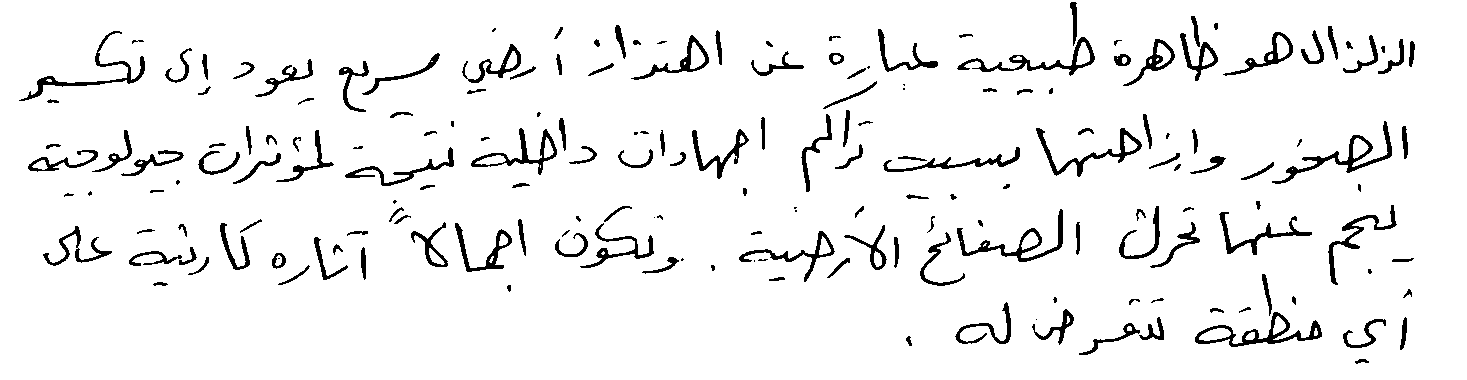 الزلزال هو ظاهرة طبيعية عبارة عن اهتزاز أرضي سريع يعود إلى تكسير
الصخور وإزاحتها بسبب تراكم اجهادات داخلية نتيجة لمؤثرات جيولوجية
ينجم عنها تحرك الصفائح الأرضية. وتكون اجمالاً آثاره كارثية على
أي منطقة تتعرض له.